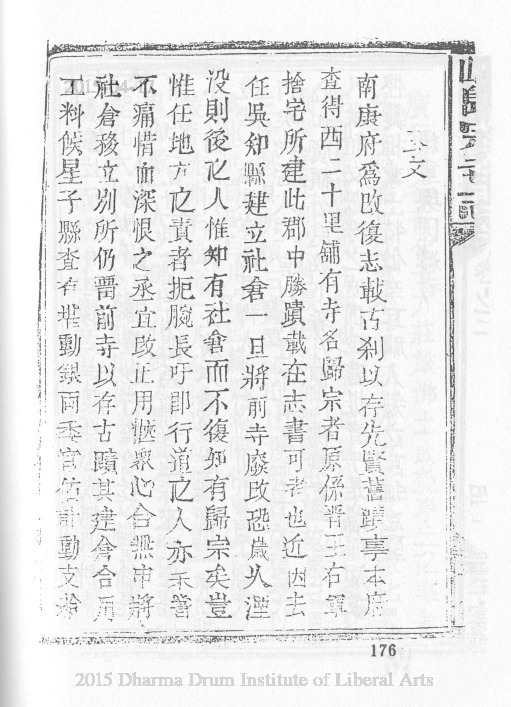 公文
南康府爲改復志載古刹以存先賢舊蹟事本府
查得西二十里舖有寺名歸宗者原係晋王右軍
捨宅所建此郡中勝蹟載在志書可考也近因去
任吳知縣建立社倉一旦將前寺廢改恐歲久湮
没則後之人惟知有社倉而不復知有歸宗矣豈
惟任地方之責者扼腕長吁卽行道之人亦未嘗
不痛惜而深恨之丞宜改正用愜衆心合無申將
社倉移立別所仍畱前寺以存古蹟其建倉合用
工料候星子縣查有堪動銀両委官估計動支
176
2015 Dharma Drum Institute of Liberal Arts